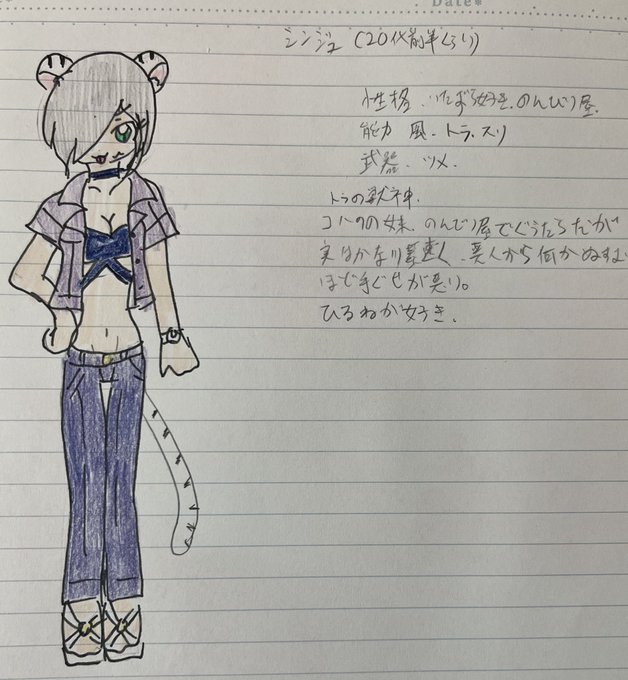 Date*
シンジュ (20代前半くらい)
性格、いたずら好き、のんびり屋、
能力 風、トラ、スリ
武器、ツメ、
トラの獣神、
コハクの妹、のんびり屋でぐうたらだが
実はかなり素速く、美人から何かぬすむ
ほど手ぐせが悪い。
ひるねが好き、